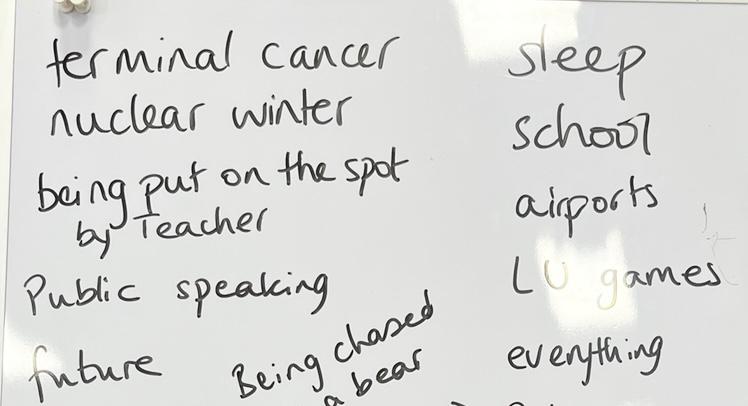 terminal cancer
nuclear winter
being put on the spot
by Teacher
Public speaking
future
Being chased
a bear
sleep
school
airports
LU games
everything